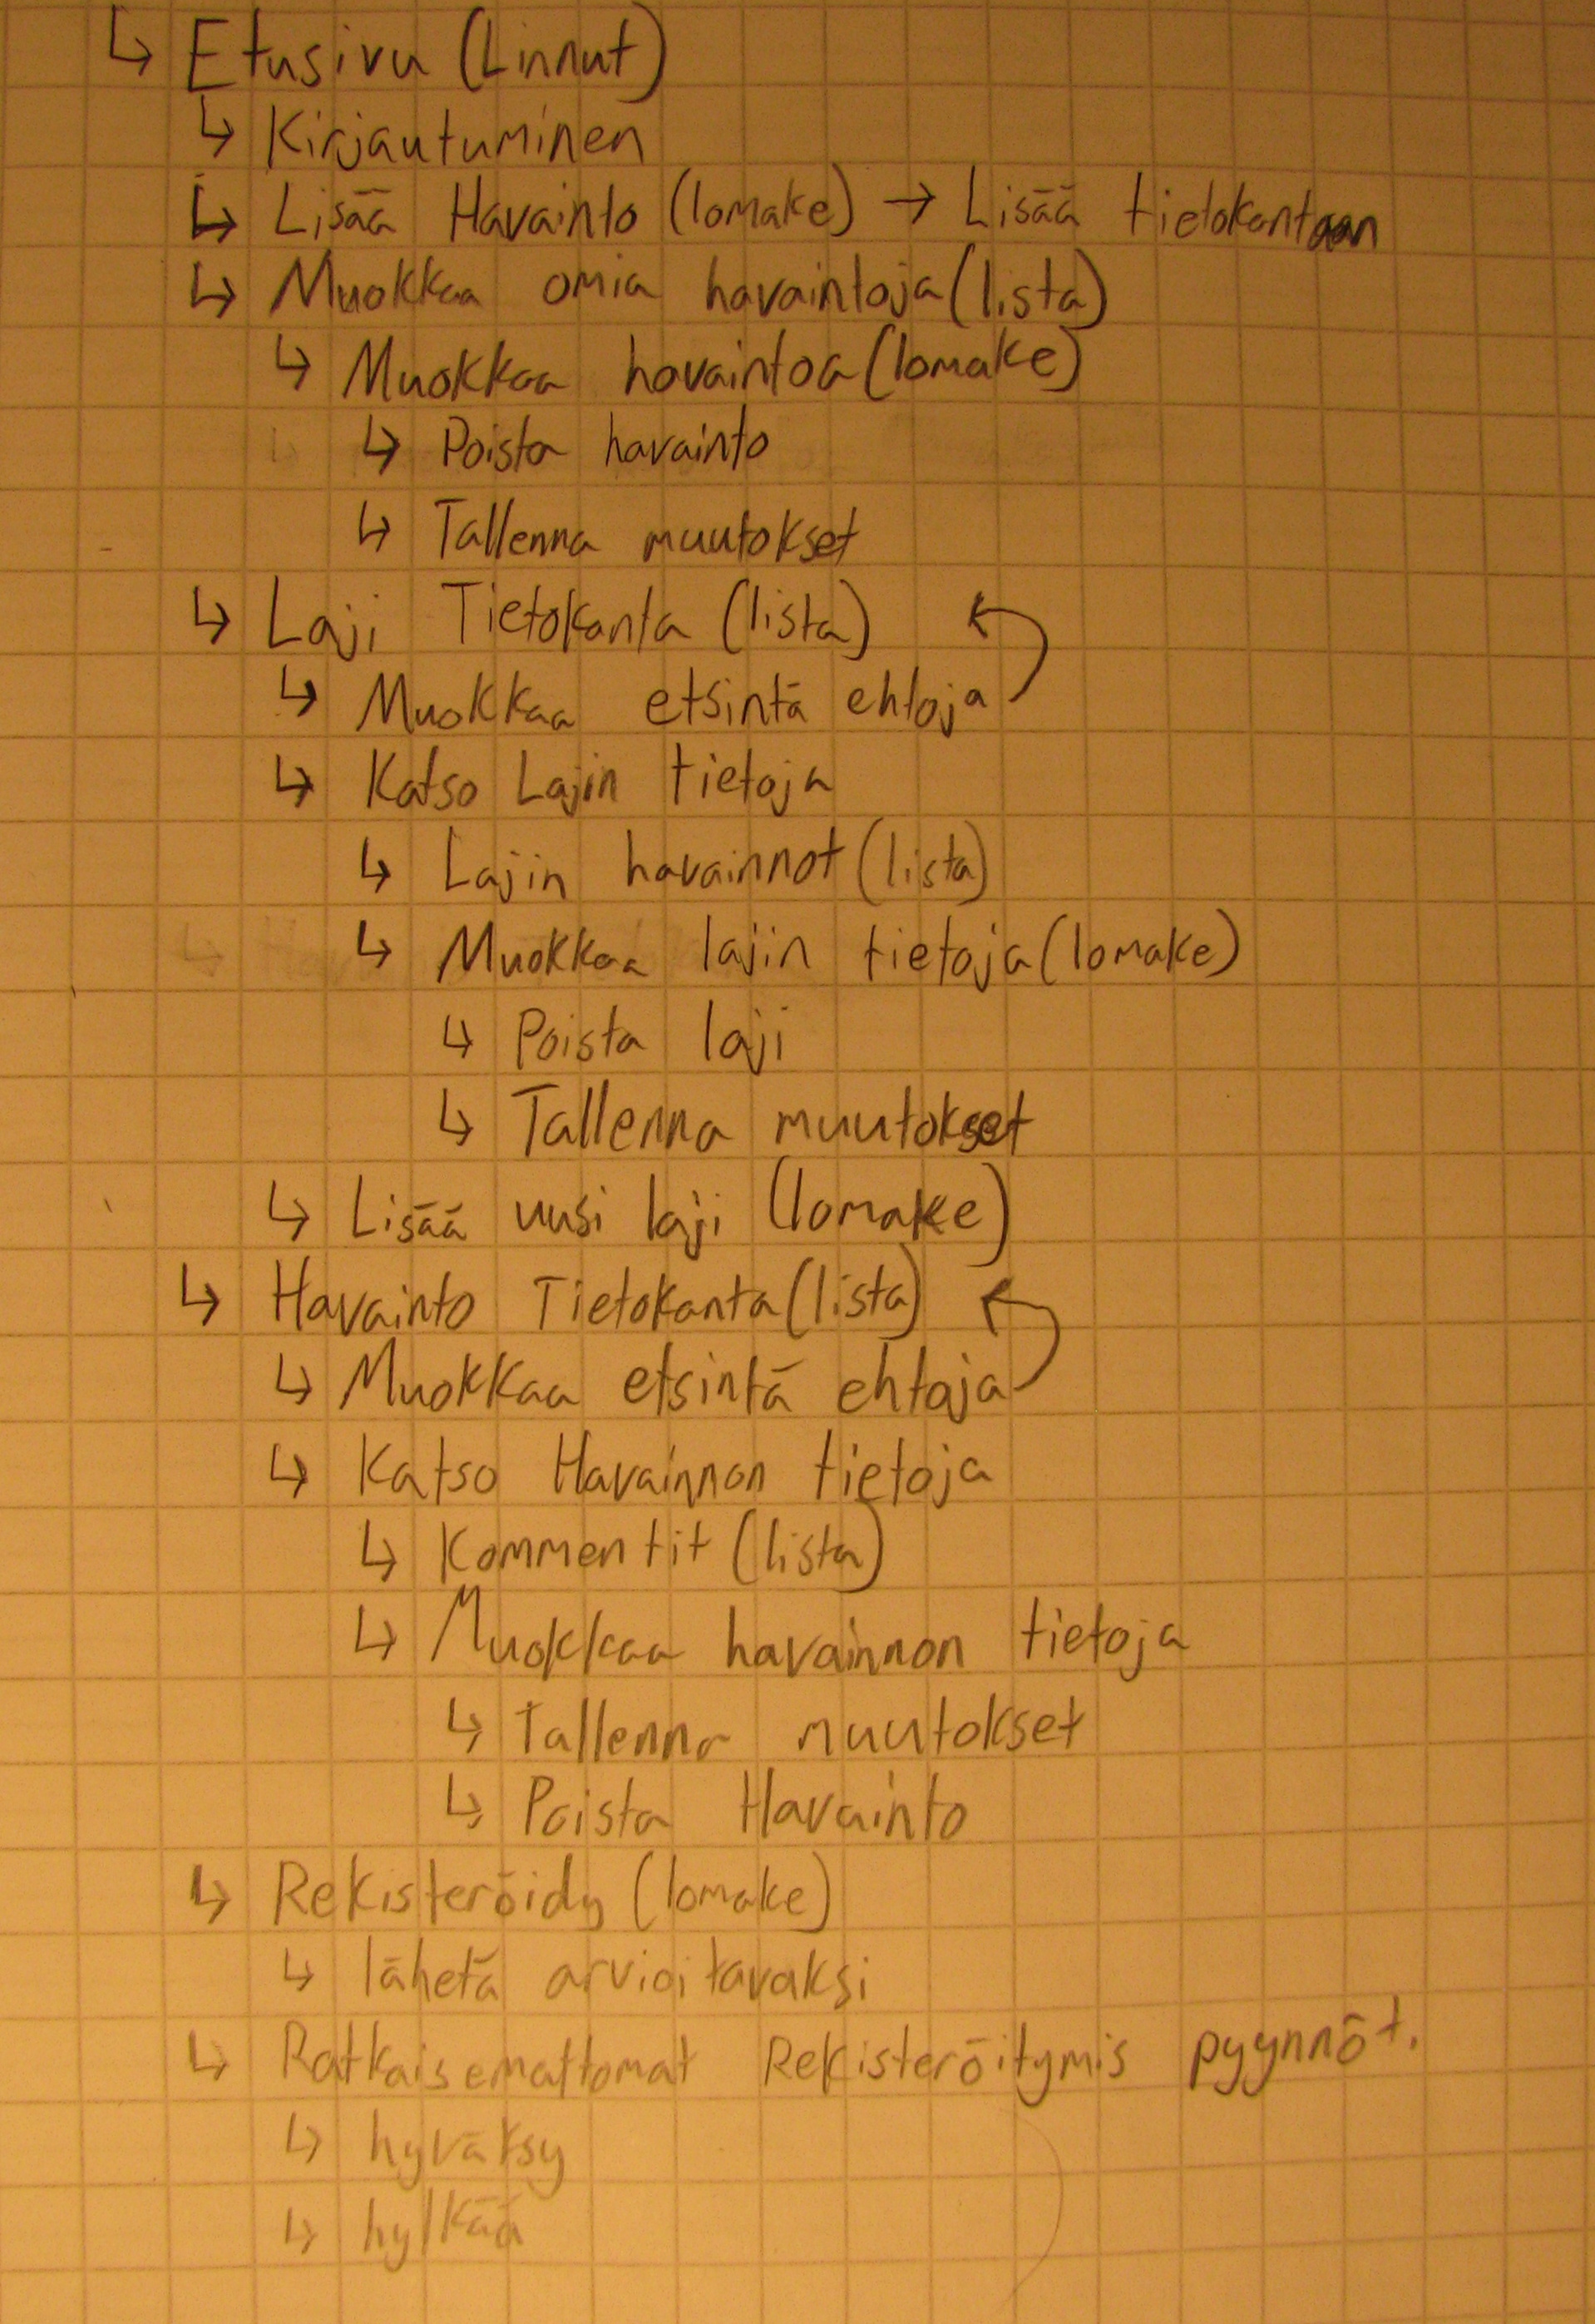 ↳ Etusivu (Linnut)
↳ Kirjautuminen
↳ Lisää Havainto (lomake) → Lisää tietokantaan
↳ Muokkaa omia havaintoja (lista)
↳ Muokkaa havaintoa (lomake)
↳ Poista havainto
↳ Tallenna muutokset
↳ Laji Tietokanta (lista)
↳ Muokkaa etsintä ehtoja
↳ Katso Lajin tietoja
↳ Lajin havainnot (lista)
↳ Muokkaa lajin tietoja (lomake)
↳ Poista laji
↳ Tallenna muutokset
↳ Lisää uusi laji (lomake)
↳ Havainto Tietokanta (lista)
↳ Muokkaa etsintä ehtoja
↳ Katso Havainnon tietoja
↳ Kommentit (lista)
↳ Muokkaa havainnon tietoja
↳ Tallenna muutokset
↳ Poista Havainto
↳ Rekisteröidy (lomake)
↳ lähetä arvioitavaksi
↳ Ratkaisemattomat Rekisteröitymis pyynnöt.
↳ hyväksy
↳ hylkää